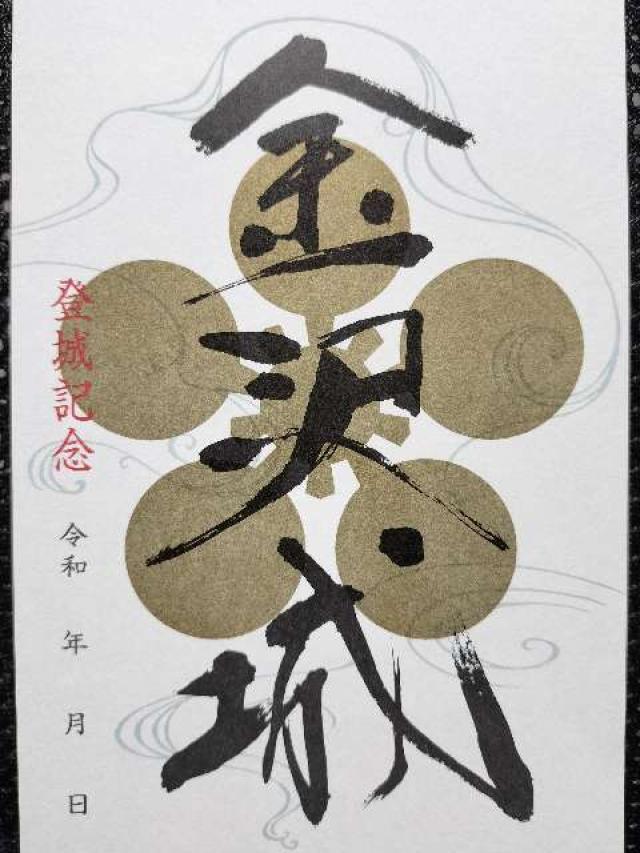 金沢城
登城記念
令和 年 月 日